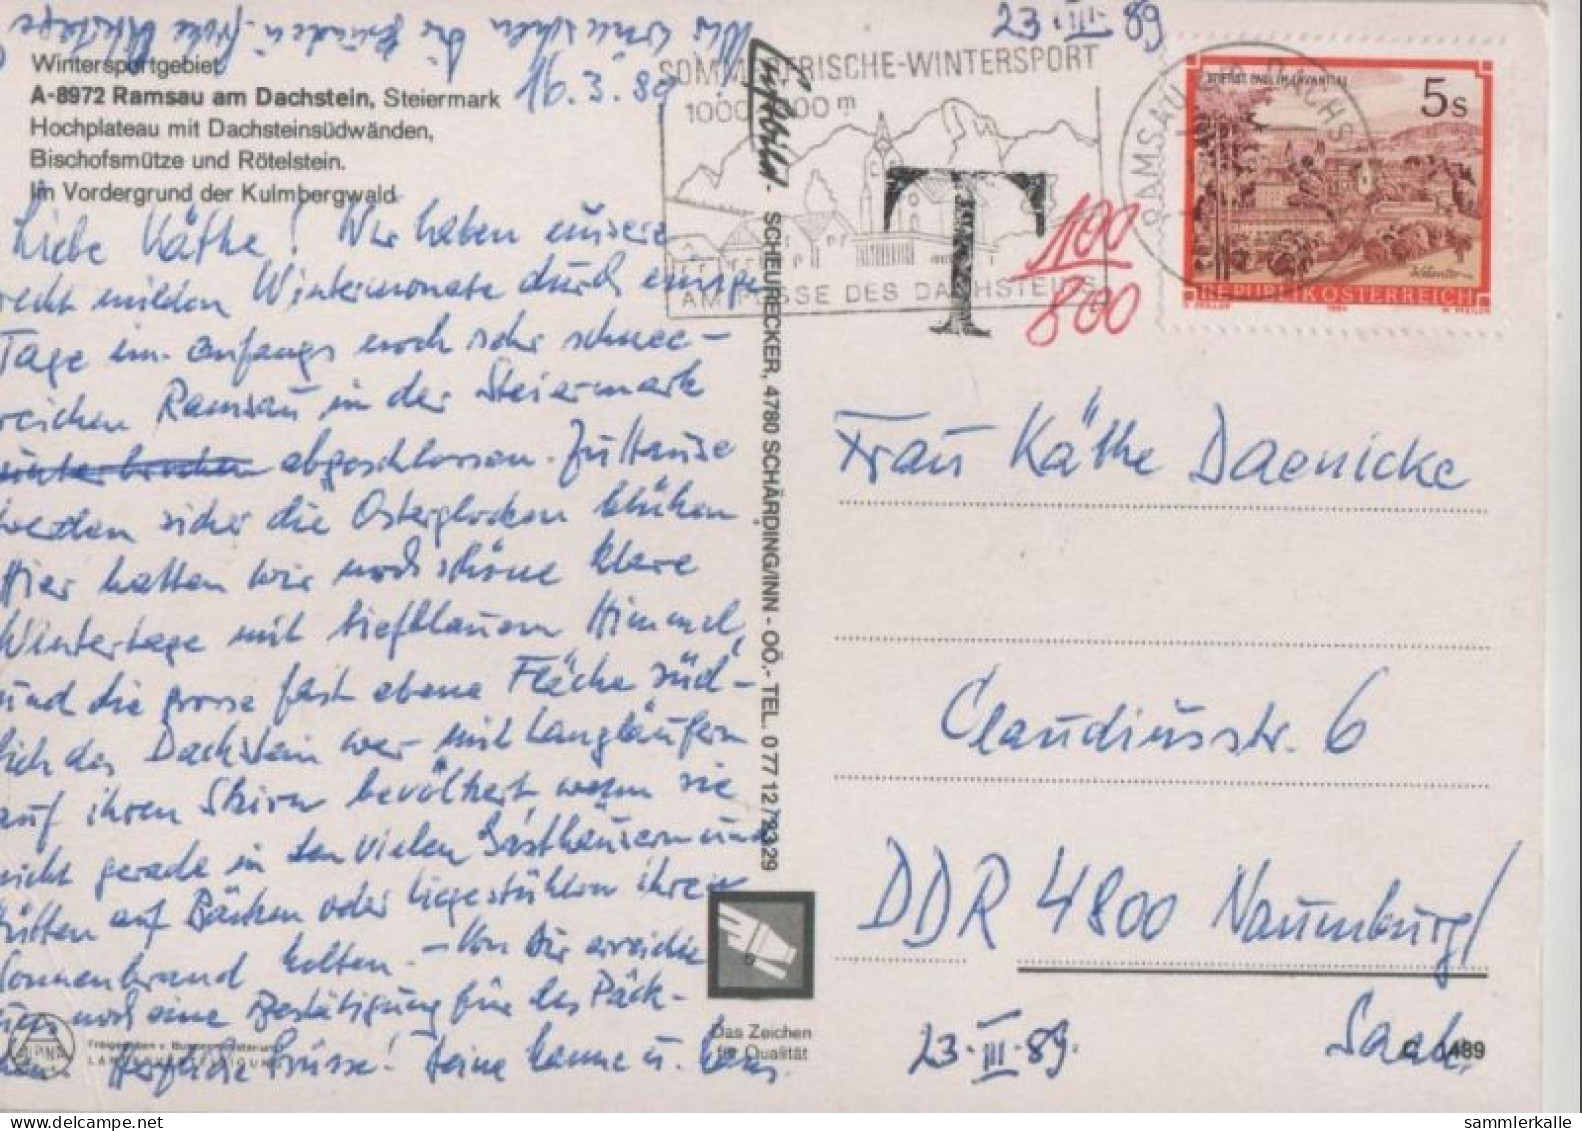 Wir wünschen Dir Gesunde u. frohe
23.III.89
Wintersportgebiet
A-8972 Ramsau am Dachstein, Steiermark
Hochplateau mit Dachsteinsüdwänden,
Bischofsmütze und Rötelstein.
Im Vordergrund der Kulmbergwald
16.3.89
Liebe Käthe! Wir haben unsere
recht milden Wintermonate durch einige
Tage im anfangs noch sehr schnee-
reichen Ramsau in der Steiermark
unterbrochen abgeschlossen. Zu Hause
werden sicher die Osterglocken blühen
Hier hatten wir noch schöne klare
Wintertage mit tiefblauem Himmel,
und die grosse fast ebene Fläche süd-
lich des Dachstein war mit Langläufern
auf ihren Skiern bevölkert wenn sie
nicht gerade in den vielen Gasthäusern und
Hütten auf Bänken oder Liegestühlen ihren
Sonnenbrand holten. – Von Dir erreichte
uns noch eine Bestätigung für das Päck-
chen. Herzliche Grüsse! Deine Hanne u. Hans
ALPINA
Freigegeben v. Bundesministerium
LANDESVERTEIDIGUNG
Luftbild-
SCHEURECKER, 4780 SCHÄRDING/INN - OÖ,- TEL. 0 77 12/2329
Das Zeichen
für Qualität
SOMMERFRISCHE-WINTERSPORT
1000 m
AM FUSSE DES DACHSTEINS
T
100
800
RAMSAU DACHST
STIFT ST. PAUL IM LAVANTTAL
5s
REPUBLIK ÖSTERREICH
1984
Frau Käthe Daenicke
Claudiusstr. 6
DDR 4800 Naumburg/
Saale
23.III.89.
489
sammlerkalle